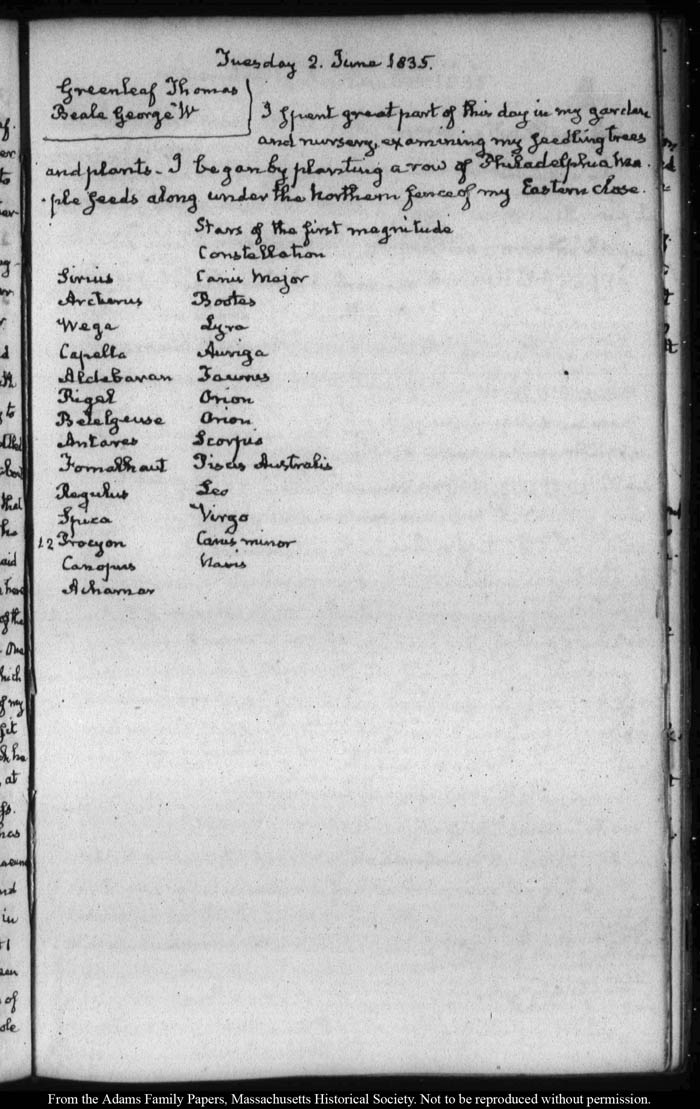 Tuesday 2. June 1835.
Greenleaf Thomas
Beale George W
I spent great part of this day in my garden
and nursery, examining my seedling trees
and plants. I began by planting a row of Philadelphia ma-
ple seeds along under the Northern fence of my Eastern close.
Stars of the first magnitude
Constellation
Sirius Canis Major
Arcturus Bootes
Wega Lyra
Capella Auriga
Aldebaran Taurus
Rigel Orion
Betelgeuse Orion
Antares Scorpio
Fomalhaut Piscis Australis
Regulus Leo
Spica Virgo
12 Procyon Canis minor
Canopus Navis
Acharnar
From the Adams Family Papers, Massachusetts Historical Society. Not to be reproduced without permission.